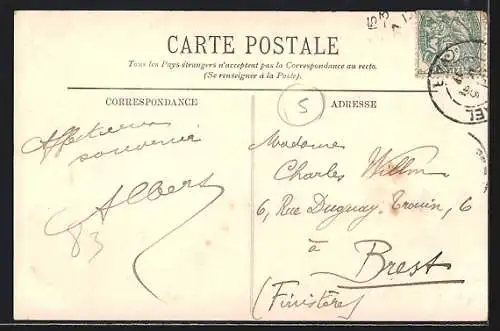 CARTE POSTALE
Tous les Pays étrangers n'acceptent pas la Correspondance au recto.
(Se renseigner à la Poste).
CORRESPONDANCE
ADRESSE
5
Affectueux
souvenir
Albert
83
Madame
Charles Willm
6, Rue Duguay-Trouin, 6
à
Brest
(Finistère)